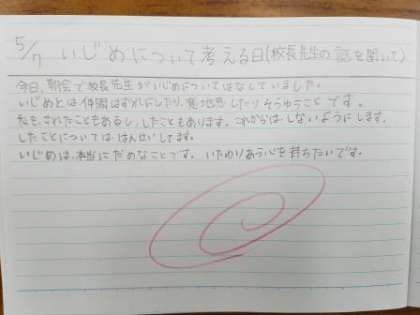 5/7 いじめについて考える日(校長先生の話を聞いて)
今日、朝会で校長先生がいじめについてはなしていました。
いじめとは仲間はずれにしたり、したりそうゆうことです。
私も、されたこともあるし、したこともあります。これからはしないようにします。
したことについてははんせいしてます。
いじめは、本当にだめなことです。いたわりあう心を持ちたいです。